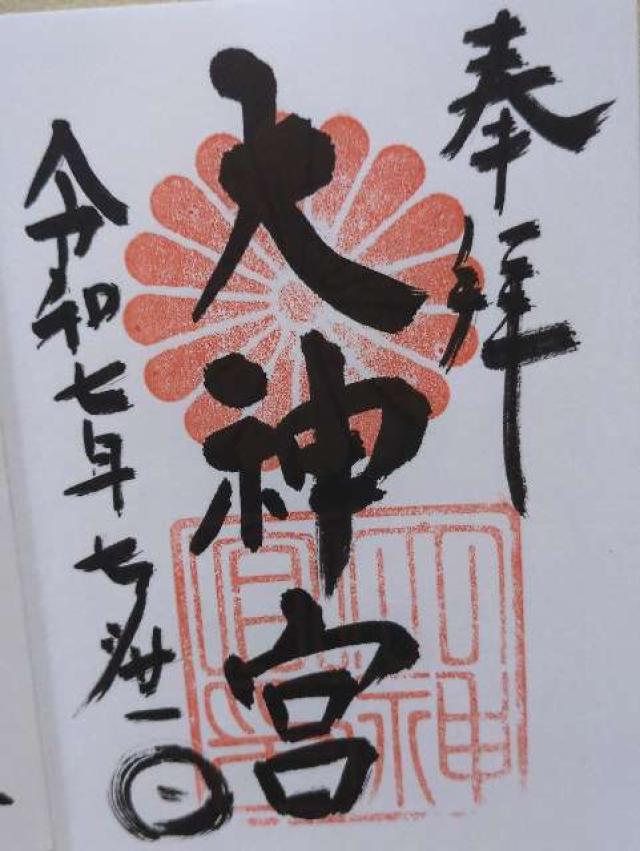 奉拝
大神宮
令和七年七月廿一日
大神宮印